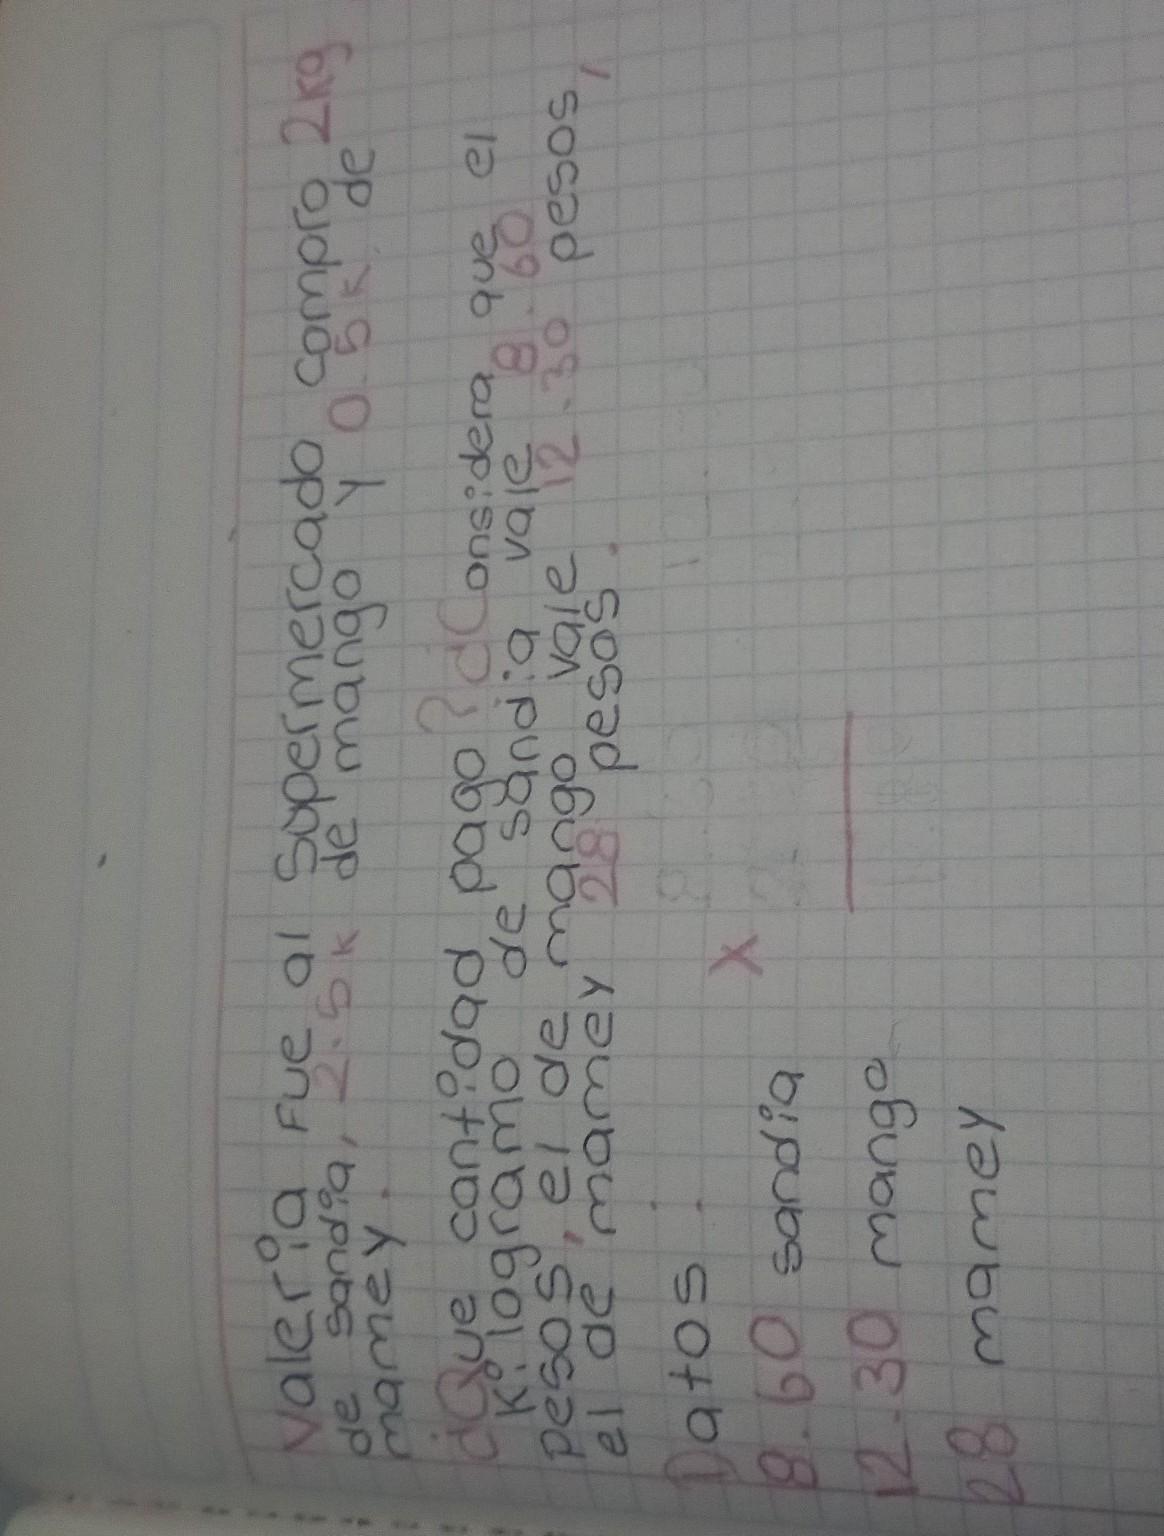 Valeria Fue al Supermercado compro 2kg
de sandia, 2.5K de mango y 0.5K. de
mamey.
¿Que cantidad pago? ¿Considera que el
kilogramo de sandia vale 8.60
pesos, el de mango vale 12.30 pesos,
el de mamey 28 pesos.
Datos :
X
8.60 sandia
12.30 mango
28 mamey